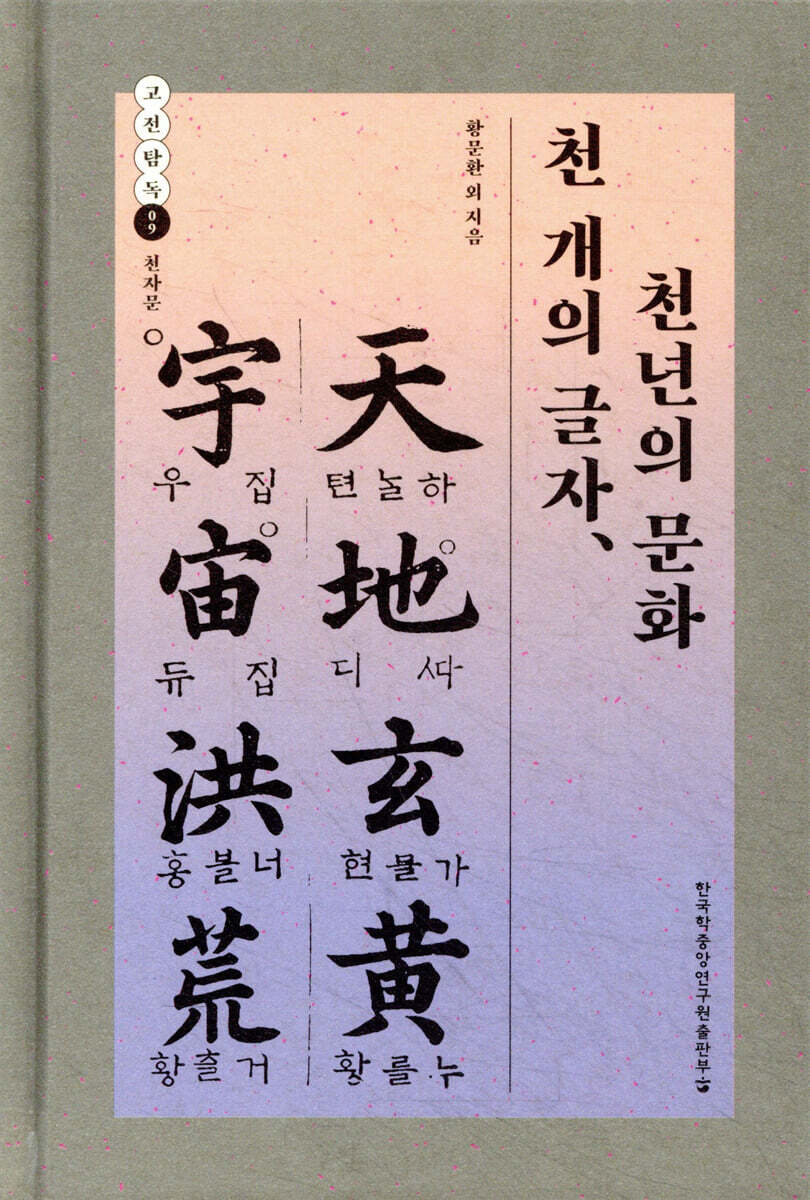 천 개의 글자,
천년의 문화
황문환 외 지음
고전탐독
09
천자문
天
하놀 텬
地
ᄯᅡ 디
玄
가믈 현
黃
누를 황
宇
집 우
宙
집 듀
洪
너블 홍
荒
거츨 황
한국학중앙연구원출판부